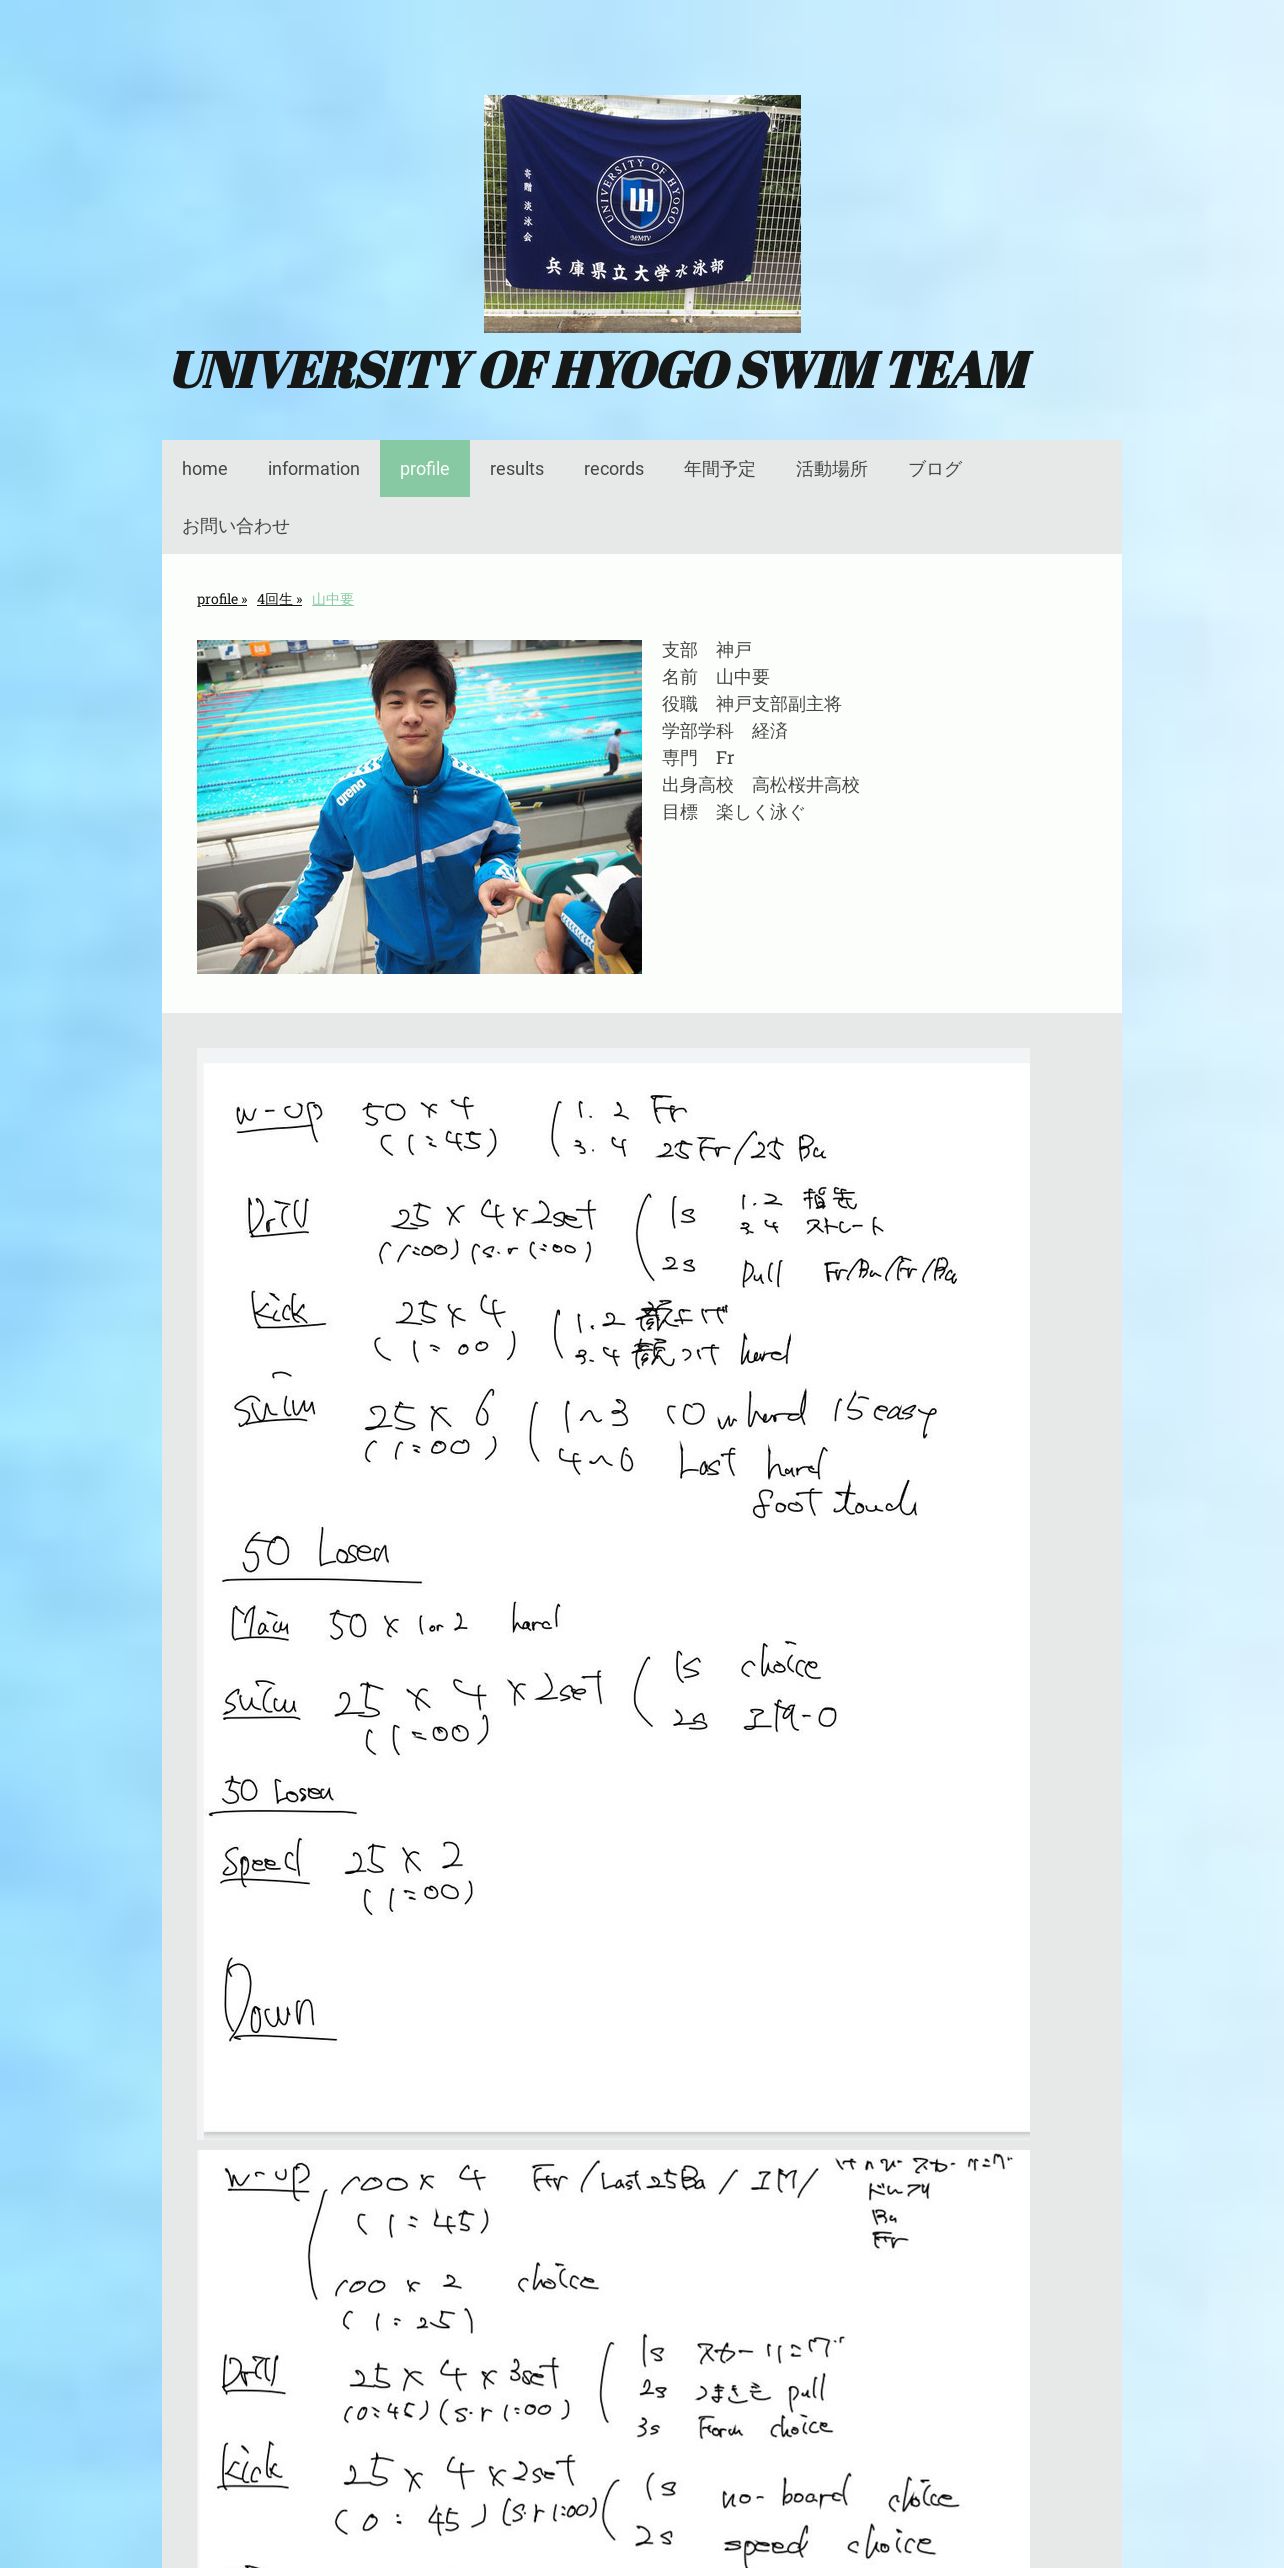 UNIVERSITY OF HYOGO
UH
MMIV
寄贈 淡泳会
兵庫県立大学水泳部
UNIVERSITY OF HYOGO SWIM TEAM
home information profile results records 年間予定 活動場所 ブログ
お問い合わせ
profile » 4回生 » 山中要
arena
支部 神戸
名前 山中要
役職 神戸支部副主将
学部学科 経済
専門 Fr
出身高校 高松桜井高校
目標 楽しく泳ぐ
w-up 50 × 4 ( 1. 2 Fr
(1=45) 3. 4 25Fr/25 Ba
Drill 25 × 4 × 2set ( 1s 1. 2 指先
(1=00) (s.r 1=00) 3. 4 ストレート
2s pull Fr/Ba/Fr/Ba
kick 25 × 4 ( 1. 2 顔上げ
(1=00) 3. 4 顔つけ hard
swim 25 × 6 ( 1~3 10m hard 15 easy
(1=00) 4~6 Last hard
foot touch
50 Losen
Main 50 × 1 or 2 hard
swim 25 × 4 × 2set ( 1s choice
(1=00) 2s
50 Losen
speed 25 × 2
(1=00)
Down
w-up 100 × 4 Fr / Last 25Ba / IM /
(1=45) Ba
Fr
100 × 2 choice
(1=25)
Drill 25 × 4 × 3set ( 1s スカーリング
(0=45) (s.r 1=00) 2s pull
3s Form choice
kick 25 × 4 × 2set ( 1s no-board choice
(0:45) (s.r 1=00) 2s speed choice